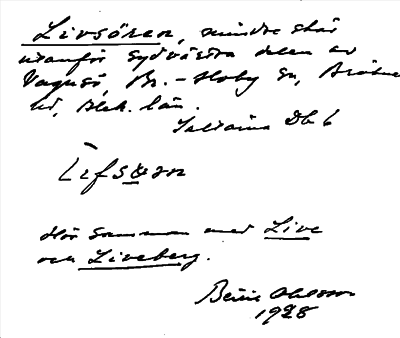 Livsören, mindre skär
utanför sydvästra delen av
Vagnsö, Br.-Hoby sn, Bräkne
hd, Blek. län.
Db 6
Lifsøren
Hör samman med Live
och Liveberg.
Ohlsson
1928